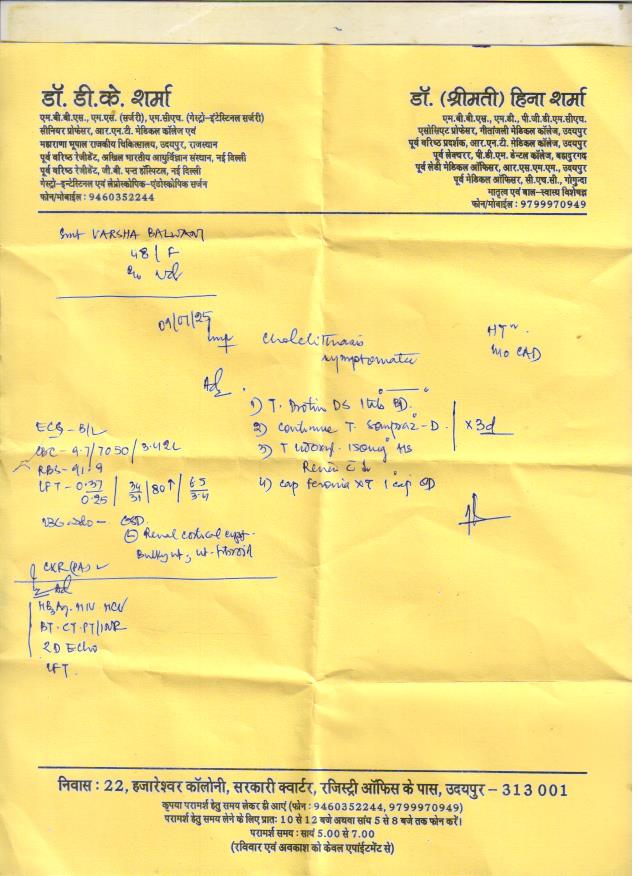 डॉ. डी.के. शर्मा
एम.बी.बी.एस., एम.एस. (सर्जरी), एम.सीएच. (गेस्ट्रो-इंटेस्टिनल सर्जरी)
सीनियर प्रोफेसर, आर.एन.टी. मेडिकल कॉलेज एवं
महाराणा भूपाल राजकीय चिकित्सालय, उदयपुर, राजस्थान
पूर्व वरिष्ठ रेजीडेंट, अखिल भारतीय आयुर्विज्ञान संस्थान, नई दिल्ली
पूर्व वरिष्ठ रेजीडेंट, जी.बी. पन्त हॉस्पिटल, नई दिल्ली
गेस्ट्रो-इन्टेस्टिनल एवं लेप्रोस्कोपिक-एंडोस्कोपिक सर्जन
फोन/मोबाईल : 9460352244
डॉ. (श्रीमती) हिना शर्मा
एम.बी.बी.एस., एम.डी., पी.जी.डी.एम.सीएच.
एसोसिएट प्रोफेसर, गीतांजली मेडिकल कॉलेज, उदयपुर
पूर्व वरिष्ठ प्रदर्शक, आर.एन.टी. मेडिकल कॉलेज, उदयपुर
पूर्व लेक्चरर, पी.डी.एम. डेन्टल कॉलेज, बहादुरगढ़
पूर्व लेडी मेडिकल ऑफिसर, आर.एस.एम.एम., उदयपुर
पूर्व मेडिकल ऑफिसर, सी.एच.सी., गोगुन्दा
मातृत्व एवं बाल-स्वास्थ्य विशेषज्ञ
फोन/मोबाईल : 9799970949
Smt VARSHA BALWANI
48 / F
09/07/25
Imp Cholelithiasis
symptomatic
HTN
no CAD
Adv
1) T. DS 1 tab BD.
2) continue T. Sompraz-D
3) T 150mg HS
x 3d
4) cap feronia XT 1 cap OD
ECG - B/L
CBC - 9.7/7050/3.42L
RBS - 91.9
LFT - 0.37/0.25 / 34/31 / 80↑ / 6.5/3.4
USG abdo - GSD
Renal cortical cyst.
Bulky ut, ut-fibroid
CXR (PA)
Adv
HBsAg. HIV. HCV
BT. CT. PT/INR
2D Echo
LFT
निवास : 22, हजारेश्वर कॉलोनी, सरकारी क्वार्टर, रजिस्ट्री ऑफिस के पास, उदयपुर – 313 001
कृपया परामर्श हेतु समय लेकर ही आएं (फोन : 9460352244, 9799970949)
परामर्श हेतु समय लेने के लिए प्रातः 10 से 12 बजे अथवा सांय 5 से 8 बजे तक फोन करें।
परामर्श समय : सायं 5.00 से 7.00
(रविवार एवं अवकाश को केवल एपॉईंटमेंट से)